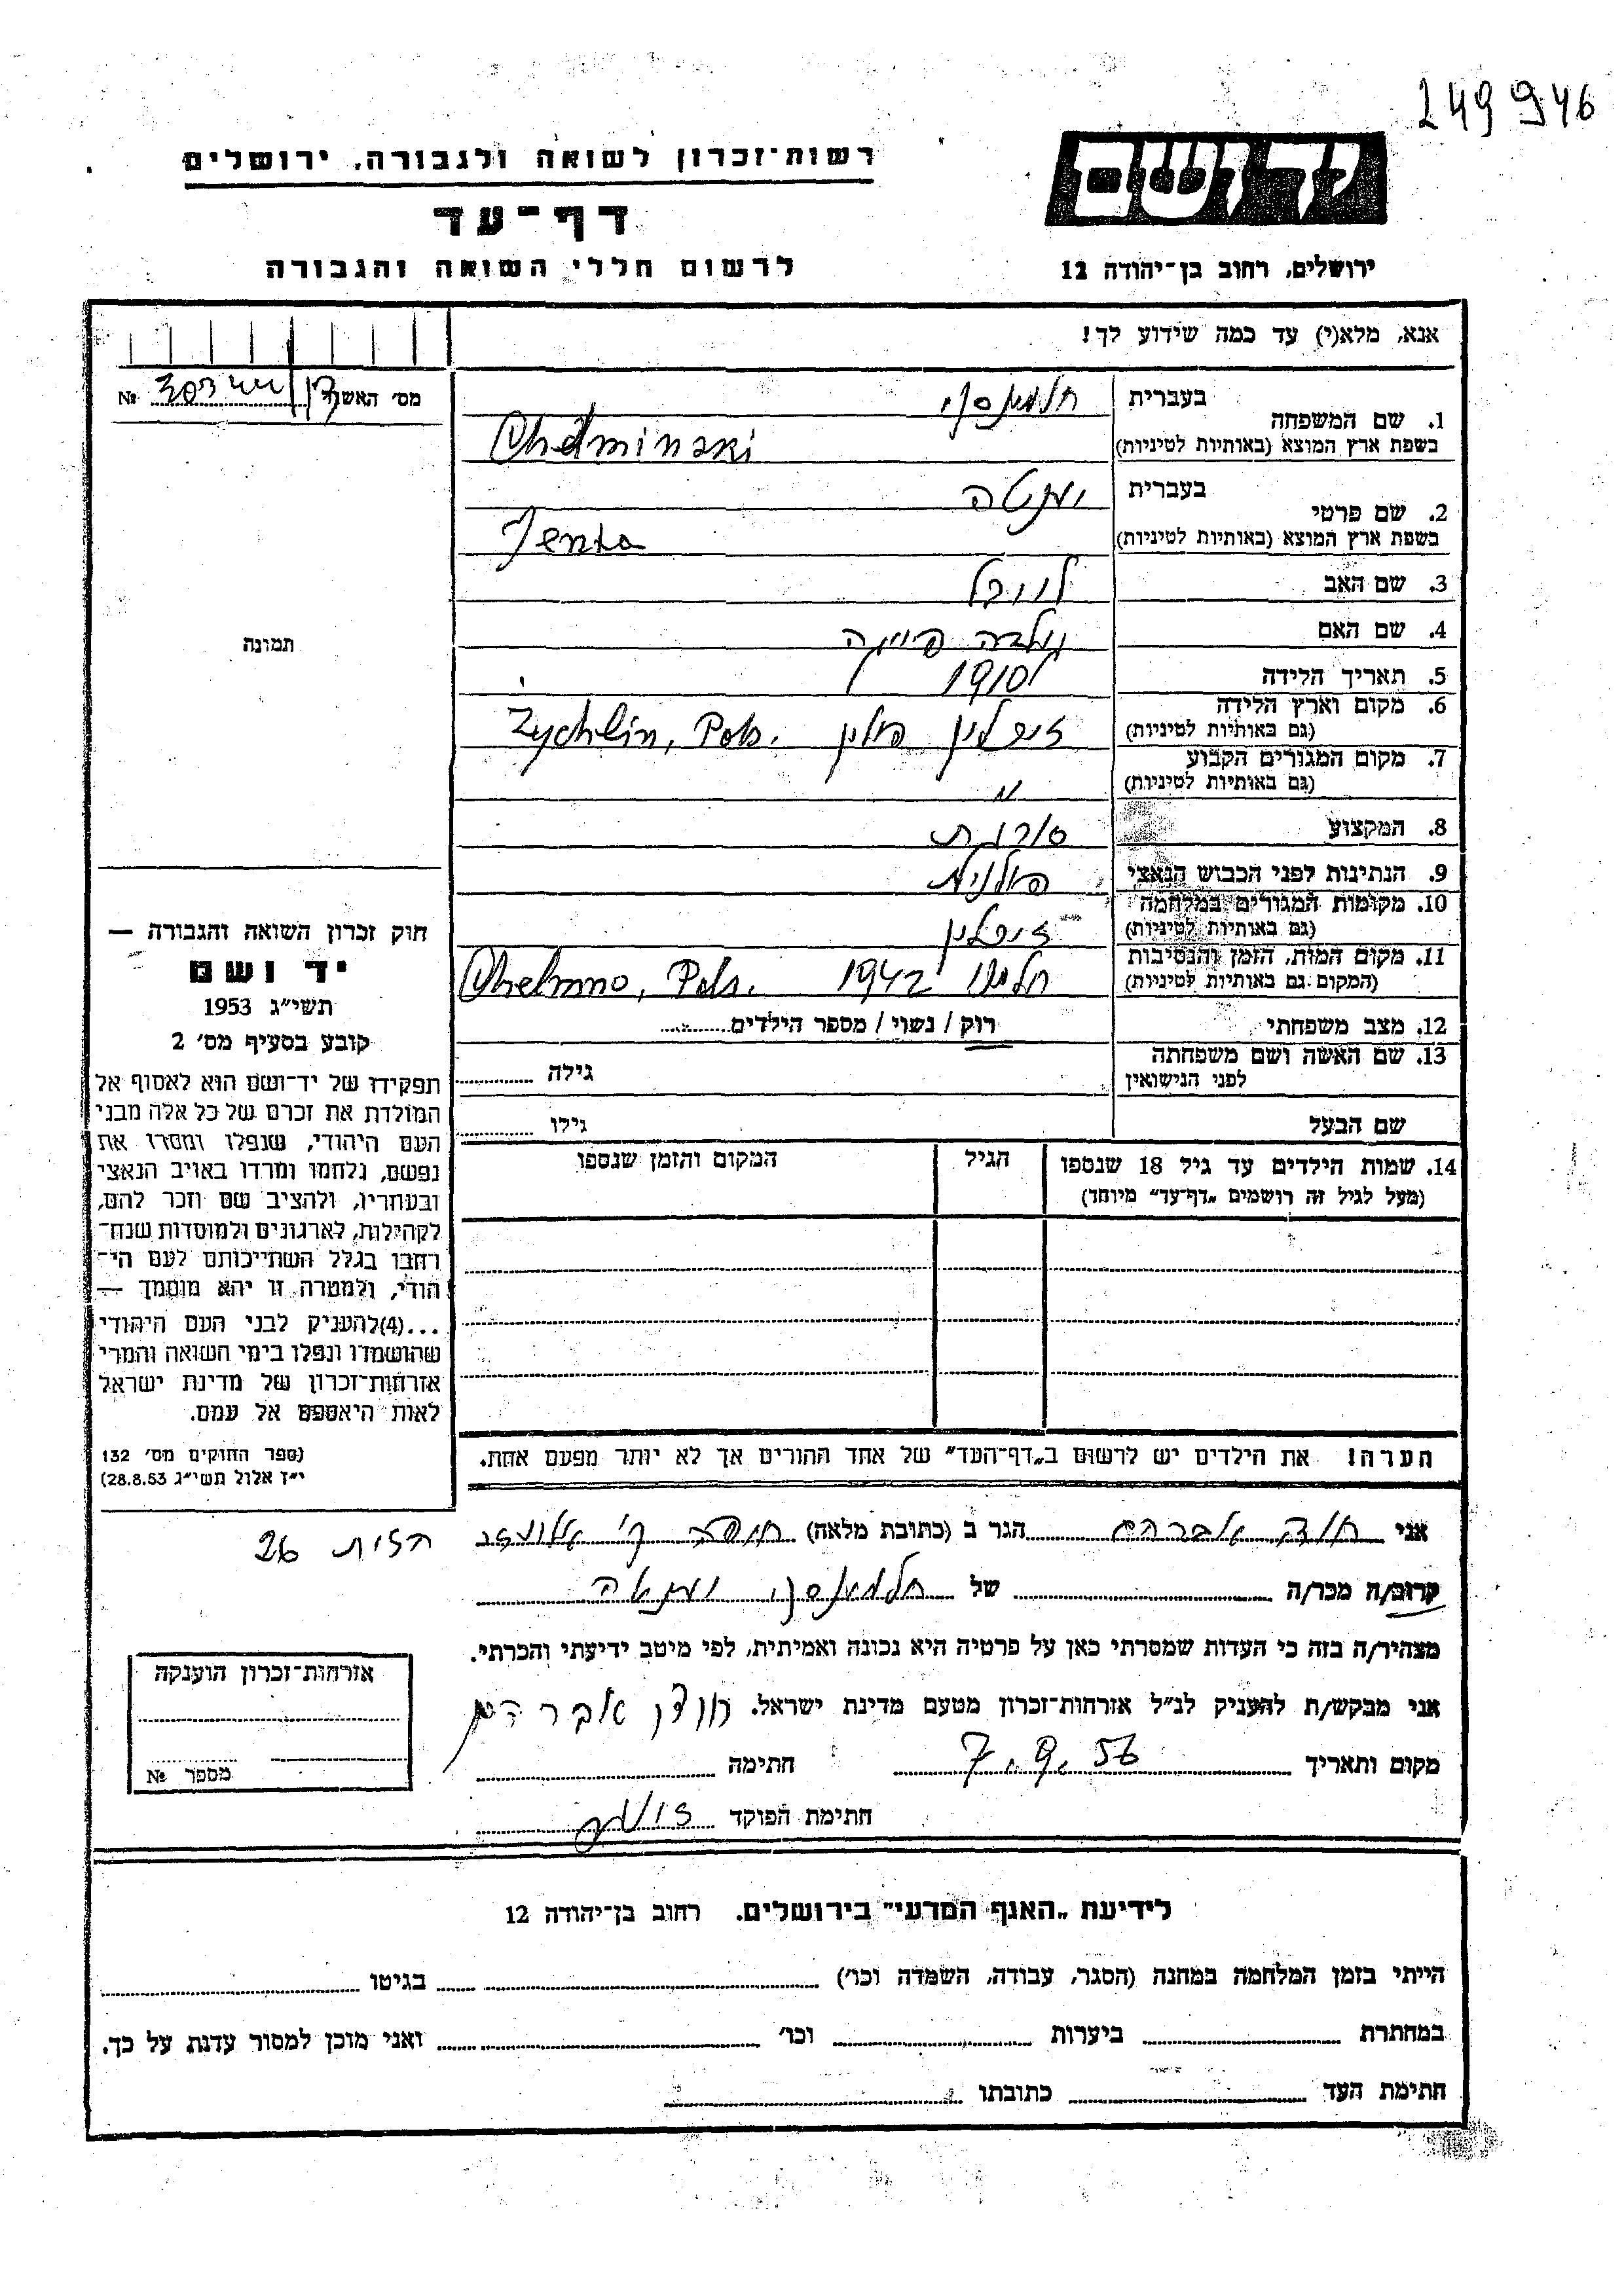 249946
רשות־זכרון לשואה ולגבורה, ירושלים
יד ושם
דף־עד
לרשום חללי השואה והגבורה
ירושלים, רחוב בן־יהודה 12
אנא, מלא(י) עד כמה שידוע לך!
מס׳ האשה №
1. שם המשפחה
בעברית חלמינסקי
בשפת ארץ המוצא (באותיות לטיניות) Chelminski
2. שם פרטי
בעברית ינטה
בשפת ארץ המוצא (באותיות לטיניות) Jenta
3. שם האב
4. שם האם
5. תאריך הלידה 1910
6. מקום וארץ הלידה
(גם באותיות לטיניות) זיכלין פולין Zychlin, Pols.
7. מקום המגורים הקבוע
(גם באותיות לטיניות) "
8. המקצוע סורגת
9. הנתינות לפני הכבוש הנאצי פולנית
10. מקומות המגורים במלחמה
(גם באותיות לטיניות) זיכלין
11. מקום המות, הזמן והנסיבות
(המקום גם באותיות לטיניות) חלמנו 1942 Chelmno, Pols.
12. מצב משפחתי רוק / נשוי / מספר הילדים
13. שם האשה ושם משפחתה
לפני הנישואין גילה
שם הבעל גילו
14. שמות הילדים עד גיל 18 שנספו הגיל המקום והזמן שנספו
(מעל לגיל זה רושמים „דף־עד” מיוחד)
תמונה
חוק זכרון השואה והגבורה —
יד ושם
תשי״ג 1953
קובע בסעיף מס׳ 2
תפקידו של יד־ושם הוא לאסוף אל
המולדת את זכרם של כל אלה מבני
העם היהודי, שנפלו ומסרו את
נפשם, נלחמו ומרדו באויב הנאצי
ובעוזריו, ולהציב שם וזכר להם,
לקהילות, לארגונים ולמוסדות שנח־
רחבו בגלל השתייכותם לעם הי־
הודי, ולמטרה זו יהא מוסמך —
...(4)להעניק לבני העם היהודי
שהושמדו ונפלו בימי השואה והמרי
אזרחות־זכרון של מדינת ישראל
לאות היאספם אל עמם.
(ספר החוקים מס׳ 132
י״ז אלול תשי״ג 28.8.53)
הערה! את הילדים יש לרשום ב„דף־העד” של אחד ההורים אך לא יותר מפעם אחת.
אני אברהם הגר ב (כתובת מלאה)
הזית 26
קרוב/ה מכר/ה של חלמינסקי ינטה
מצהיר/ה בזה כי העדות שמסרתי כאן על פרטיה היא נכונה ואמיתית, לפי מיטב ידיעתי והכרתי.
אני מבקש/ת להעניק לנ״ל אזרחות־זכרון מטעם מדינת ישראל. אברהם
מקום ותאריך 7.9.56 חתימה
חתימת הפוקד
אזרחות־זכרון הוענקה
מספר №
לידיעת „האגף המדעי” בירושלים. רחוב בן־יהודה 12
הייתי בזמן המלחמה במחנה (הסגר, עבודה, השמדה וכו׳) בגיטו
במחתרת ביערות וכו׳ ואני מוכן למסור עדות על כך.
חתימת העד כתובתו